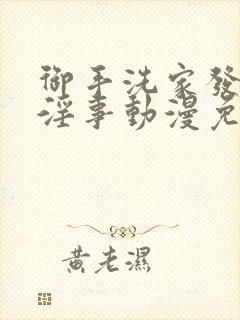 御手洗家發
淫事動漫免
黃老濕